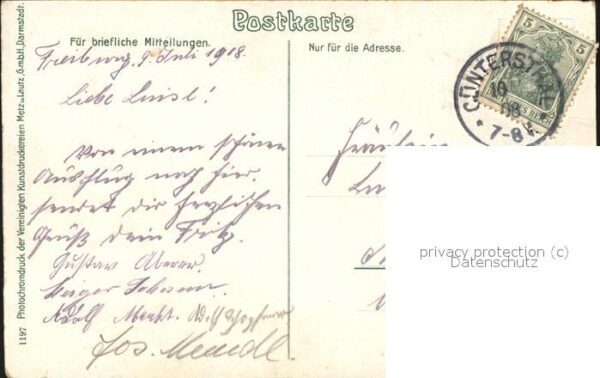 Postkarte
Für briefliche Mitteilungen.
Nur für die Adresse.
Freiburg, 9. Juli 1918.
Liebe Luise!
Von einem schönen
Ausflug nach hier
sendet dir herzlichen
Gruß dein Fritz.
Gustav
Adolf
Jos. Mendl
Fräulein
5 5
GÜNTERSTHAL
10
7-8
1197 Photochromdruck der Vereinigten Kunstdruckereien Metz u. Lautz, G.m.b.H., Darmstadt.
privacy protection (c)
Datenschutz